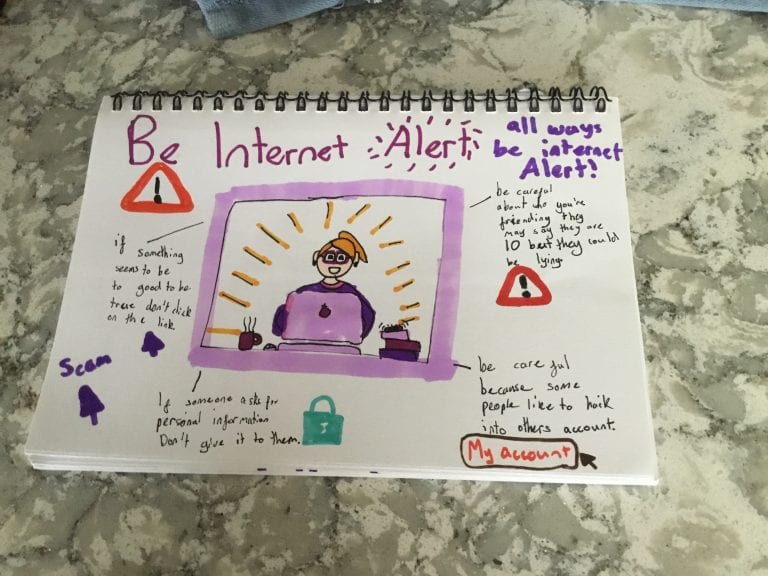 Be Internet Alert
all ways
be internet
Alert!
!
be careful
about who you're
friending they
may say they are
10 but they could
be lying.
!
if something
seems to be
to good to be
true don't click
on the link
Scam
be careful
because some
people like to hack
into others account.
If someone asks for
personal information
Don't give it to them.
My account